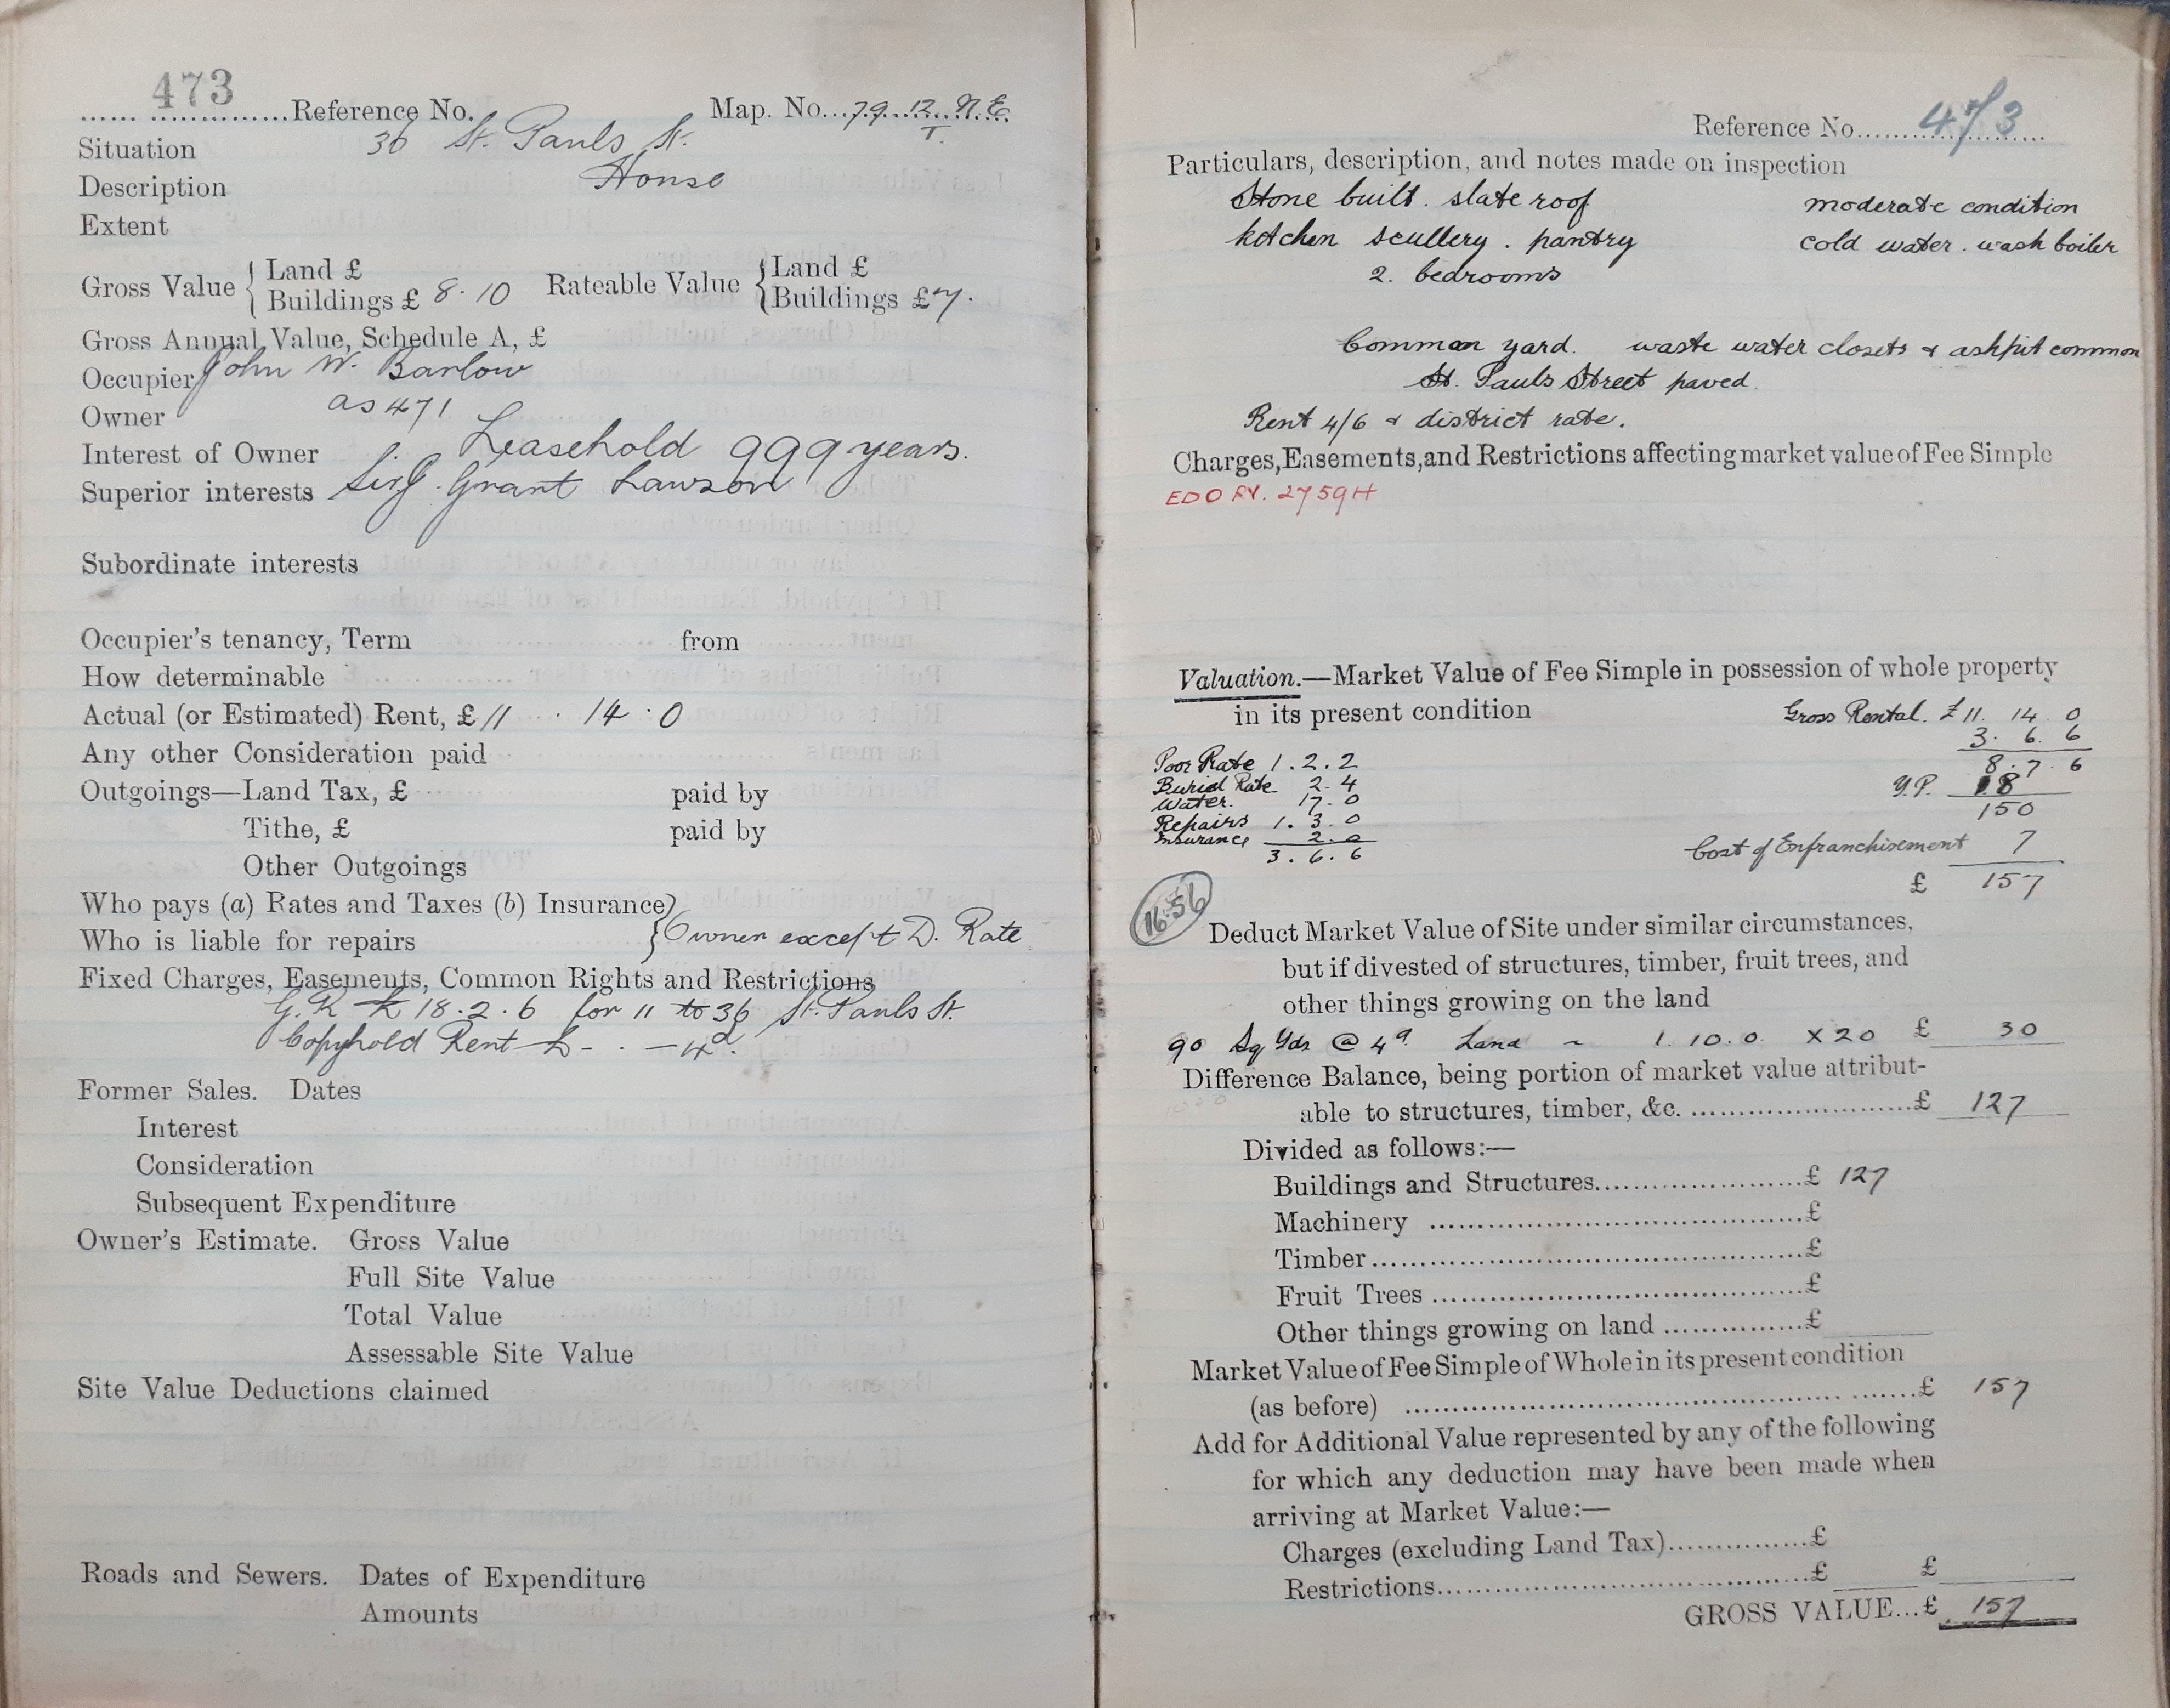 473
Reference No. Map. No. 79 12 N.E.
I.
Situation 36 St. Pauls St.
Description House
Extent
Gross Value { Land £ Rateable Value { Land £
Buildings £ 8.10 Buildings £ 7.
Gross Annual Value, Schedule A, £
Occupier John W. Barlow
Owner as 471
Interest of Owner Leasehold 999 years.
Superior interests Sir J. Grant Lawson
Subordinate interests
Occupier's tenancy, Term from
How determinable
Actual (or Estimated) Rent, £ 11 . 14 . 0
Any other Consideration paid
Outgoings—Land Tax, £ paid by
Tithe, £ paid by
Other Outgoings
Who pays (a) Rates and Taxes (b) Insurance }
Who is liable for repairs } Owner except D. Rate
Fixed Charges, Easements, Common Rights and Restrictions
G.R £ 18.2.6 for 11 to 36 St. Pauls St.
Copyhold Rent £ - . - 4d.
Former Sales. Dates
Interest
Consideration
Subsequent Expenditure
Owner's Estimate. Gross Value
Full Site Value
Total Value
Assessable Site Value
Site Value Deductions claimed
Roads and Sewers. Dates of Expenditure
Amounts
Reference No. 473
Particulars, description, and notes made on inspection
Stone built. slate roof moderate condition
kitchen scullery. pantry cold water. wash boiler
2. bedrooms
Common yard. waste water closets & ashpit common
St. Pauls Street paved.
Rent 4/6 & district rate.
Charges, Easements, and Restrictions affecting market value of Fee Simple
2759H
Valuation.—Market Value of Fee Simple in possession of whole property
in its present condition Gross Rental. £11. 14. 0
3. 6. 6
Poor Rate 1.2.2 8.7.6
Burial Rate 2.4 Y.P. 18
Water. 17.0 150
Repairs 1.3.0
Insurance 2.0 Cost of Enfranchisement 7
3.6.6
£ 157
16.56
Deduct Market Value of Site under similar circumstances,
but if divested of structures, timber, fruit trees, and
other things growing on the land
90 Sq Yds @ 4d Land ~ 1. 10. 0. X 20 £ 30
Difference Balance, being portion of market value attribut-
able to structures, timber, &c. £ 127
Divided as follows:—
Buildings and Structures £ 127
Machinery £
Timber £
Fruit Trees £
Other things growing on land £
Market Value of Fee Simple of Whole in its present condition
(as before) £ 157
Add for Additional Value represented by any of the following
for which any deduction may have been made when
arriving at Market Value:—
Charges (excluding Land Tax) £
Restrictions £ £
GROSS VALUE...£ 157